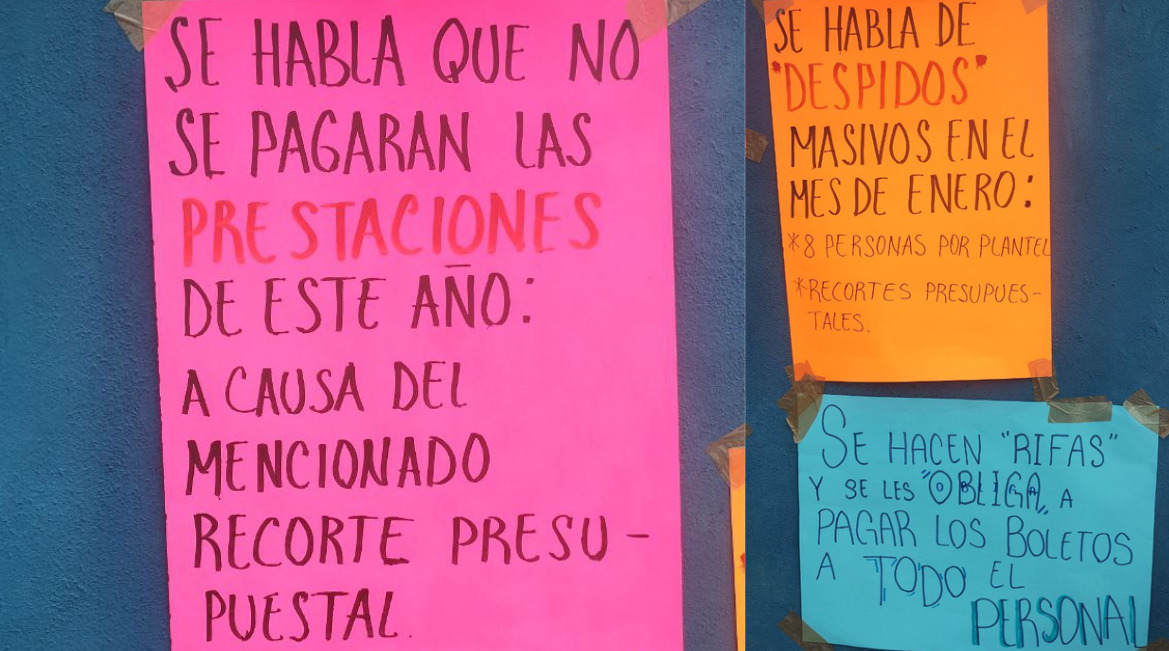 SE HABLA QUE NO
SE PAGARAN LAS
PRESTACIONES
DE ESTE AÑO:
A CAUSA DEL
MENCIONADO
RECORTE PRESU-
PUESTAL.
SE HABLA DE
"DESPIDOS"
MASIVOS EN EL
MES DE ENERO:
*8 PERSONAS POR PLANTEL
*RECORTES PRESUPUES-
TALES.
SE HACEN "RIFAS"
Y SE LES "OBLIGA" A
PAGAR LOS BOLETOS
A TODO EL
PERSONAL